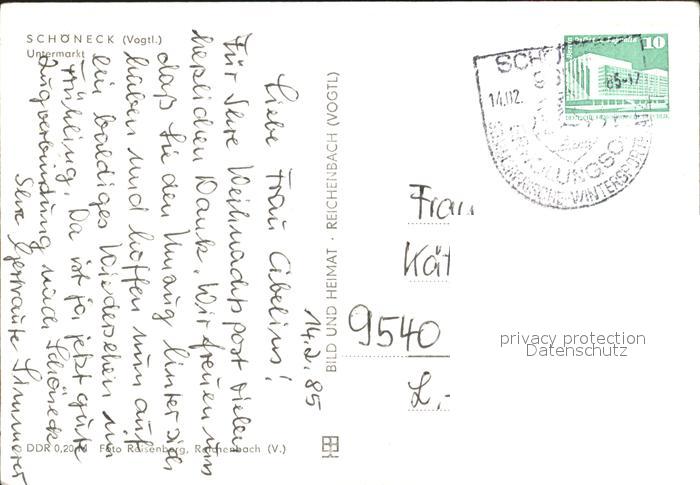 SCHÖNECK (Vogtl.)
Untermarkt
14.2.85
Liebe Frau Cibelius!
Für Ihre Weihnachtspost vielen
herzlichen Dank. Wir freuen uns
daß Sie den Umzug hinter sich
haben und hoffen nun auf
ein baldiges Wiedersehen im
Frühling. Da ist ja jetzt gute
Zugverbindung nach Schöneck
Ihre Gertraute
DDR 0,20 M Foto Reisenberg, Reichenbach (V.)
BILD UND HEIMAT · REICHENBACH (VOGTL)
10
14.02.85-17
WINTERSPORT
Frau
Kät
9540
privacy protection
Datenschutz